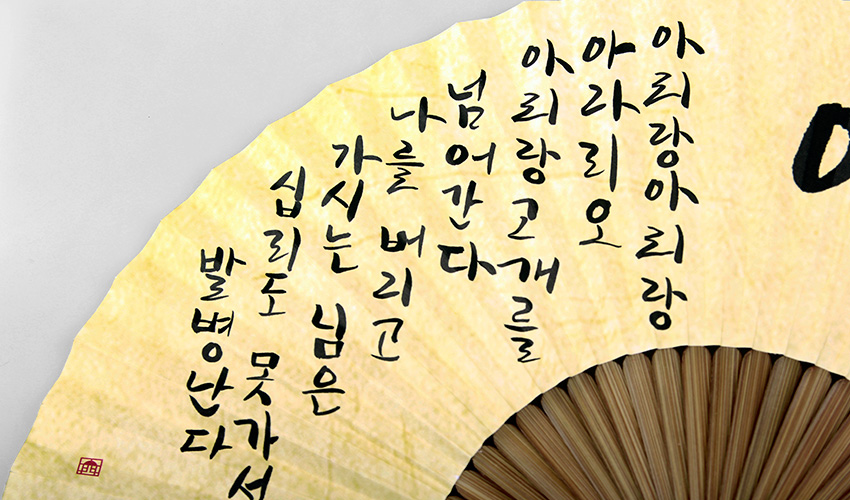 아리랑아리랑
아라리오
아리랑고개를
넘어간다
나를 버리고
가시는 님은
십리도 못가서
발병난다